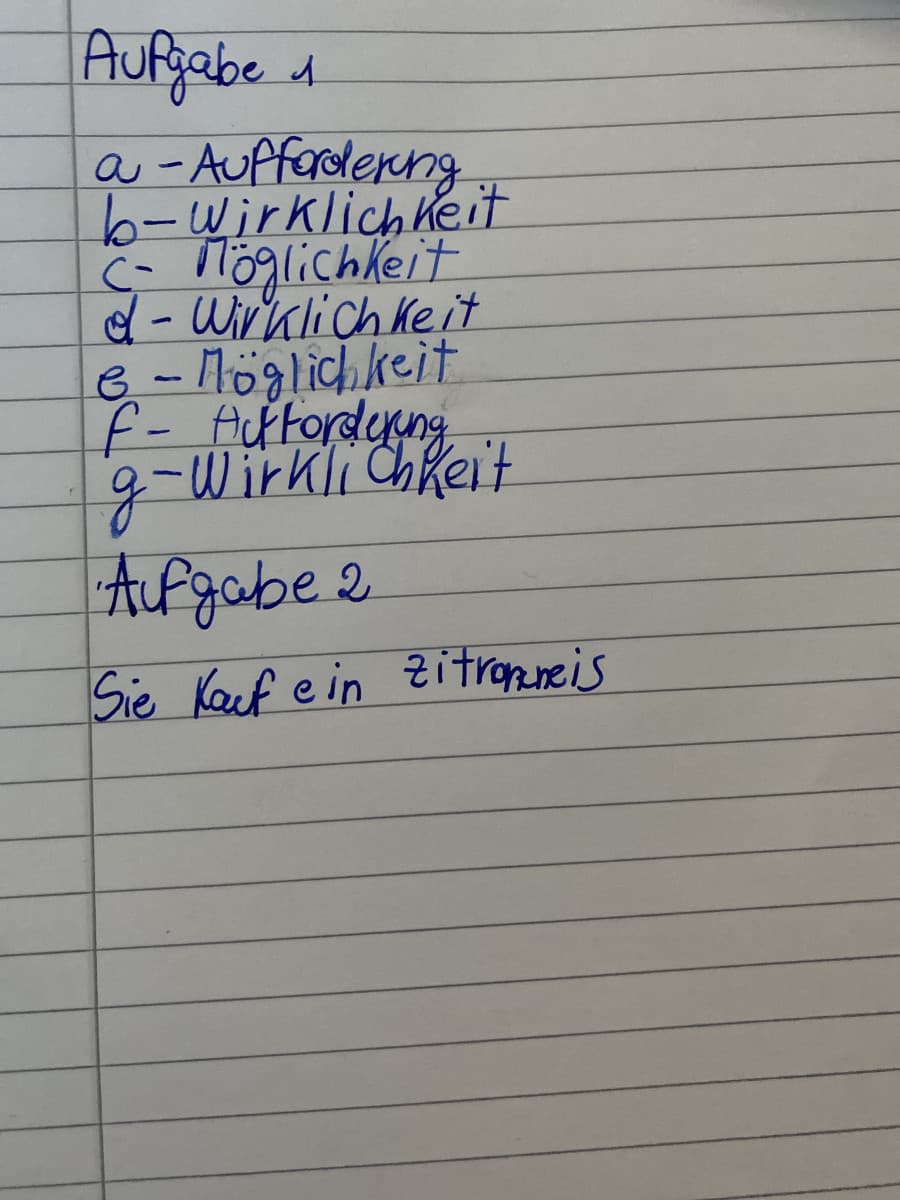 Aufgabe 1
a - Aufforderung
b - Wirklichkeit
c - Möglichkeit
d - Wirklichkeit
e - Möglichkeit
f - Aufforderung
g - Wirklichkeit
Aufgabe 2
Sie kauf ein zitroneneis